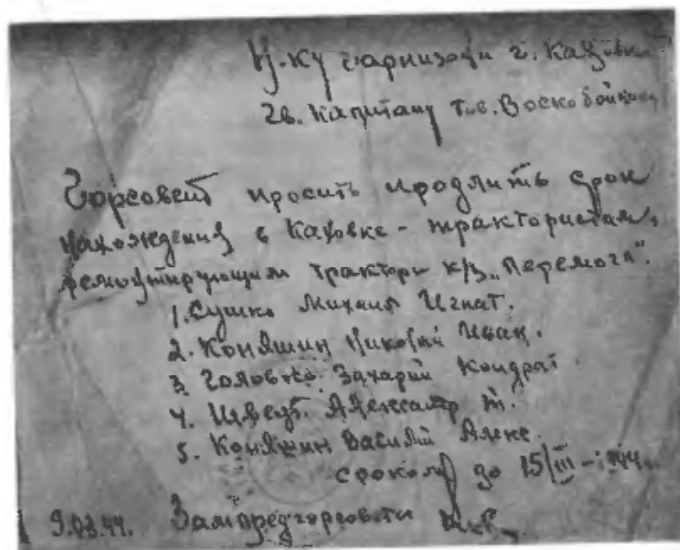 Н-ку гарнизона г. Каховк
Гв. Капитану тов. Воскобойнику
Горсовет просить продлить срок
нахождения в Каховке - трактористам,
ремонтирующим трактори к/з „Перемога".
1. Сушко Михаил Игнат.
2. Коняшин Николай Иван.
3. Головко Захарий Кондрат.
4. Швец Александр М.
5. Коняшин Василий Алекс.
сроком до 15/III-1944.
9.03.44. Зампредгорсовета